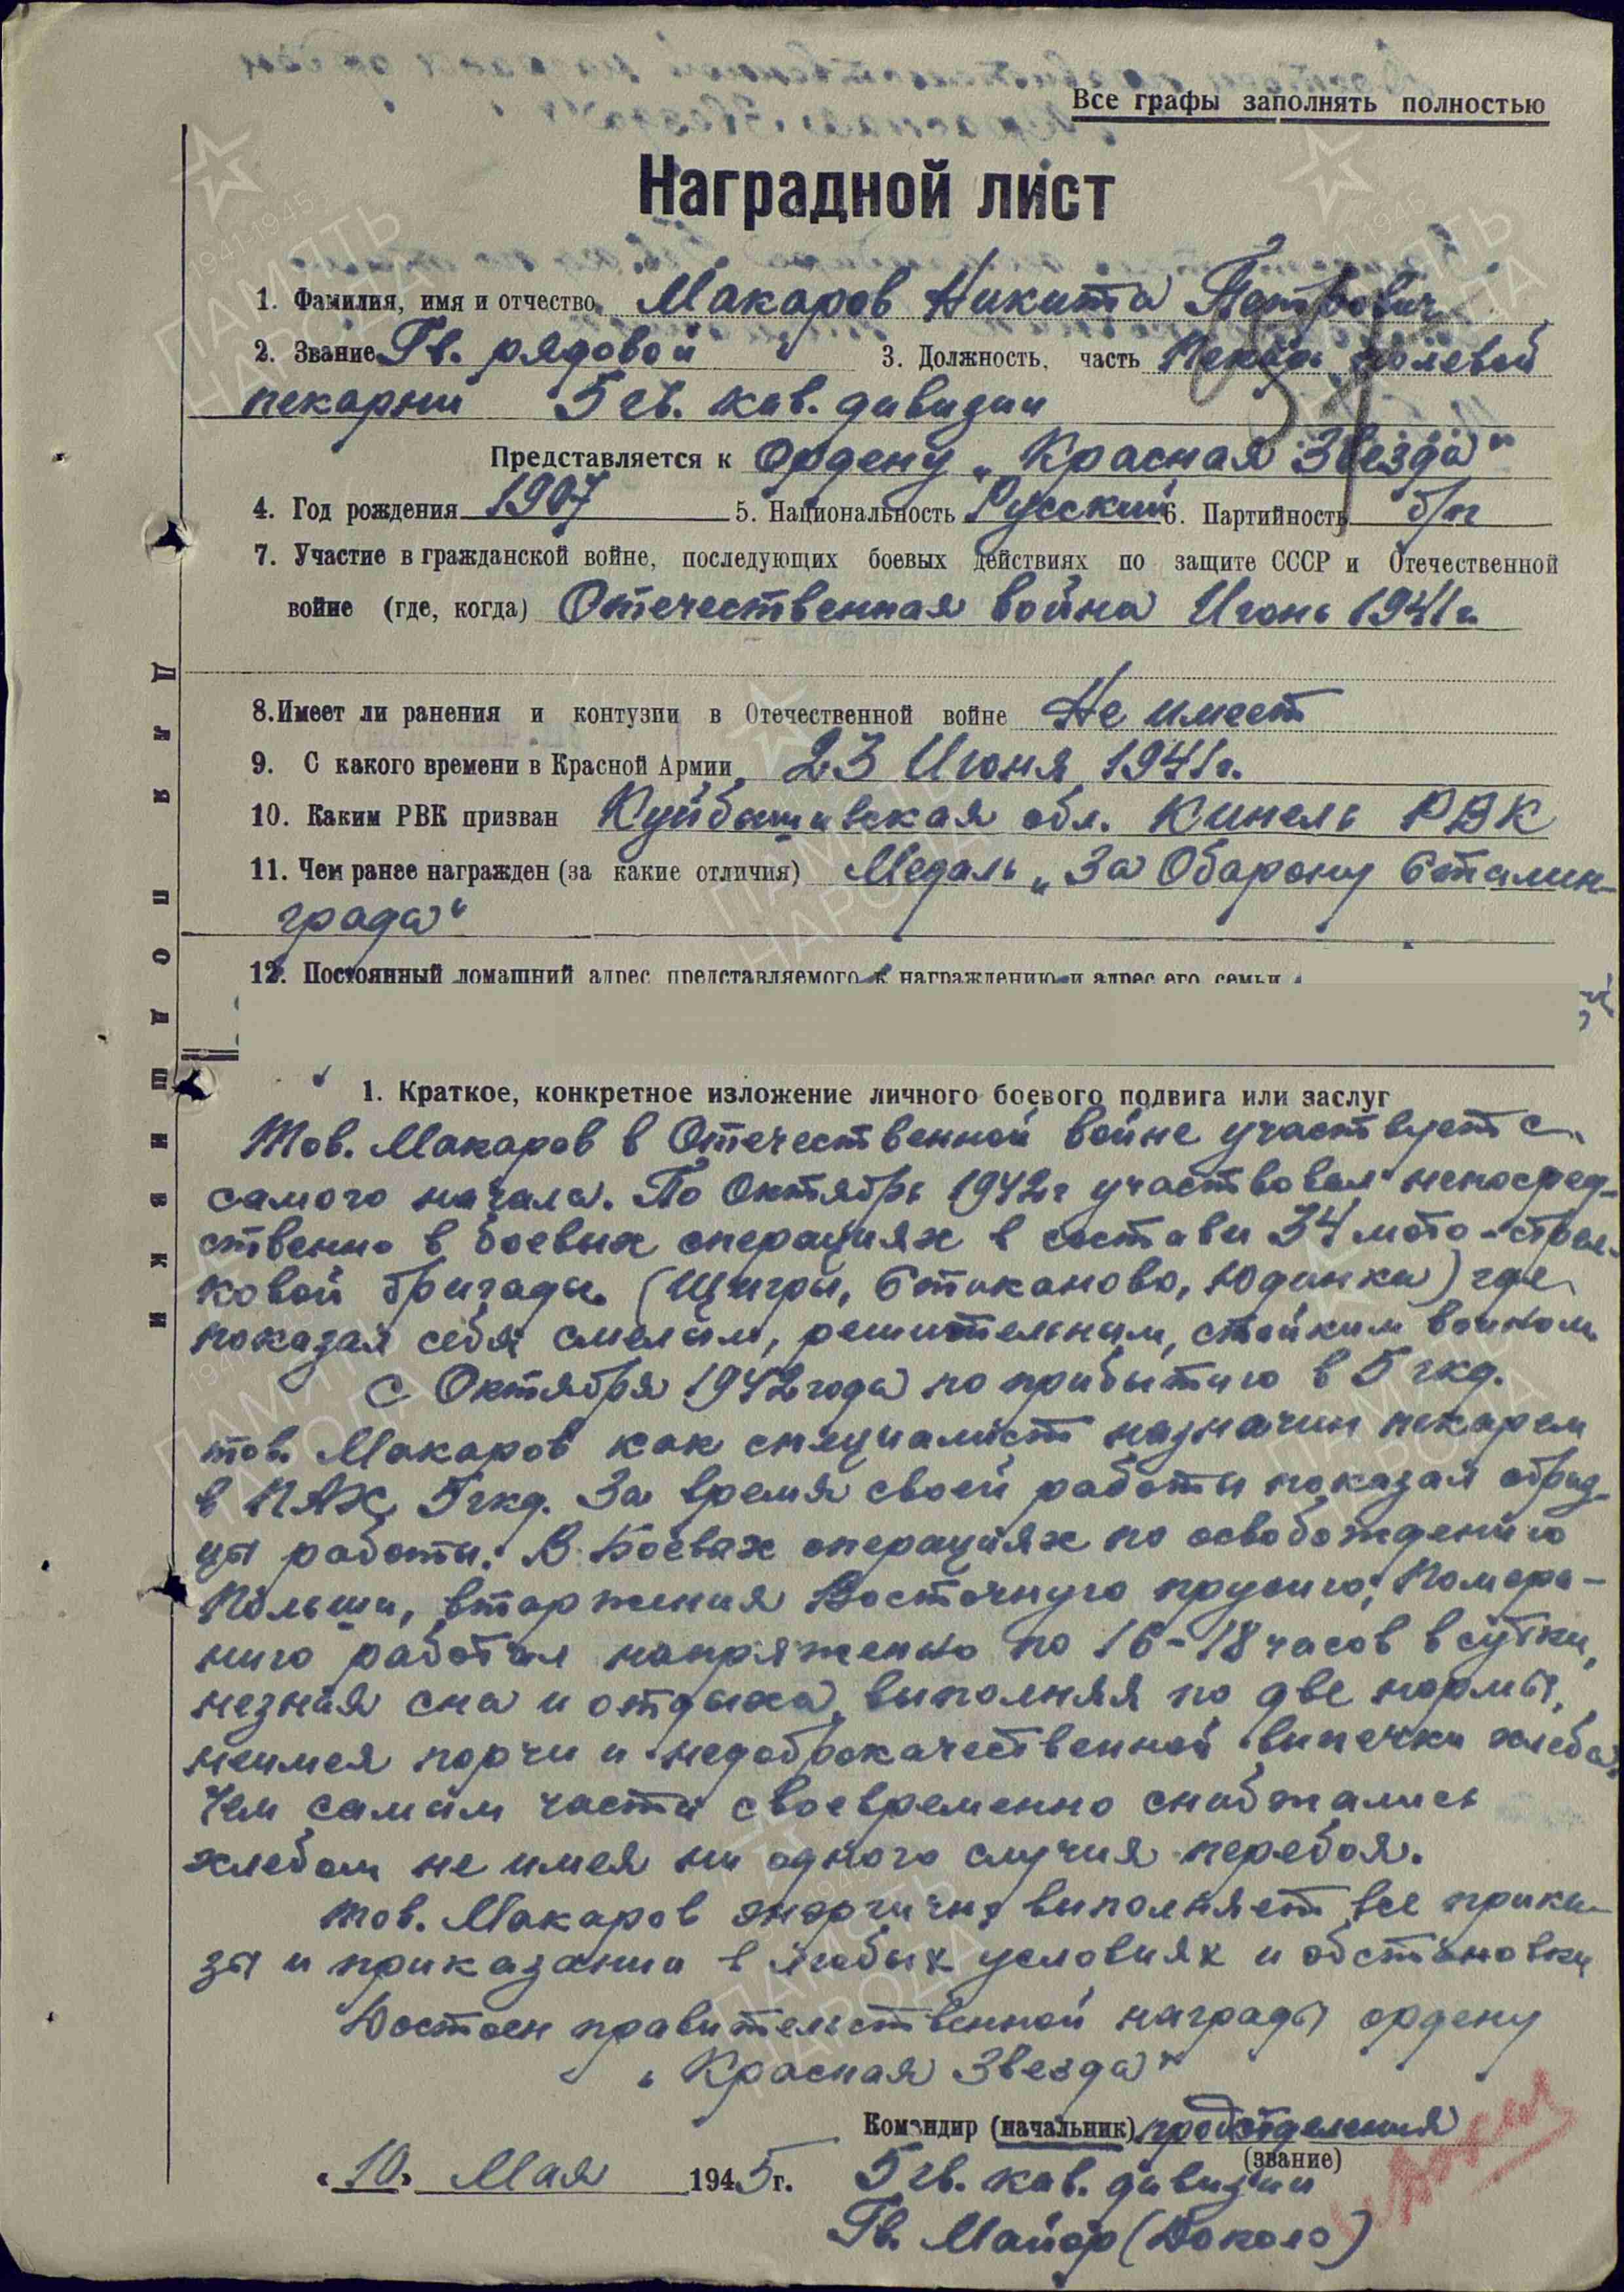 Все графы заполнять полностью
Наградной лист
1. Фамилия, имя и отчество Макаров Никита Петрович
2. Звание Гв. рядовой 3. Должность, часть Пекарь полевой
пекарни 5 гв. кав. дивизии
Представляется к Ордену „Красная Звезда"
4. Год рождения 1907 5. Национальность Русский 6. Партийность б/п
7. Участие в гражданской войне, последующих боевых действиях по защите СССР и Отечественной
войне (где, когда) Отечественная война Июнь 1941г.
8. Имеет ли ранения и контузии в Отечественной войне Не имеет
9. С какого времени в Красной Армии 23 Июня 1941г.
10. Каким РВК призван Куйбышевская обл. Кинель РВК
11. Чем ранее награжден (за какие отличия) Медаль „За Оборону Сталин-
града"
12. Постоянный домашний адрес представляемого к награждению и адрес его семьи
Для подшивки
1. Краткое, конкретное изложение личного боевого подвига или заслуг
Тов. Макаров в Отечественной войне участвует с
самого начала. По Октябрь 1942г участвовал непосред-
ственно в боевых операциях в составе 34 мото-стрел-
ковой бригады (Щигры, Стаканово, Юдинка) где
показал себя смелым, решительным, стойким воином.
С Октября 1942 года по прибытию в 5 гкд.
тов. Макаров как специалист назначен пекарем
в ПАХ 5 гкд. За время своей работы показал образ-
цы работы. В Боевых операциях по освобождению
Польши, вторжения Восточную пруссию, Помера-
нию работал напряженно по 16-18 часов в сутки,
незная сна и отдыха, выполняя по две нормы,
неимея порчи и недоброкачественной выпечки хлеба,
Чем самым части своевременно снабжались
хлебом не имея ни одного случия перебоя.
тов. Макаров энергично выполняет все прика-
зы и приказании в любых условиях и обстановки
Достоен правительственной награды ордену
„Красная Звезда"
Командир (начальник) продотделения
(звание)
„10" Мая 1945г. 5 гв. кав. дивизии
Гв. Майор (Доколо)
ПАМЯТЬ НАРОДА
1941-1945